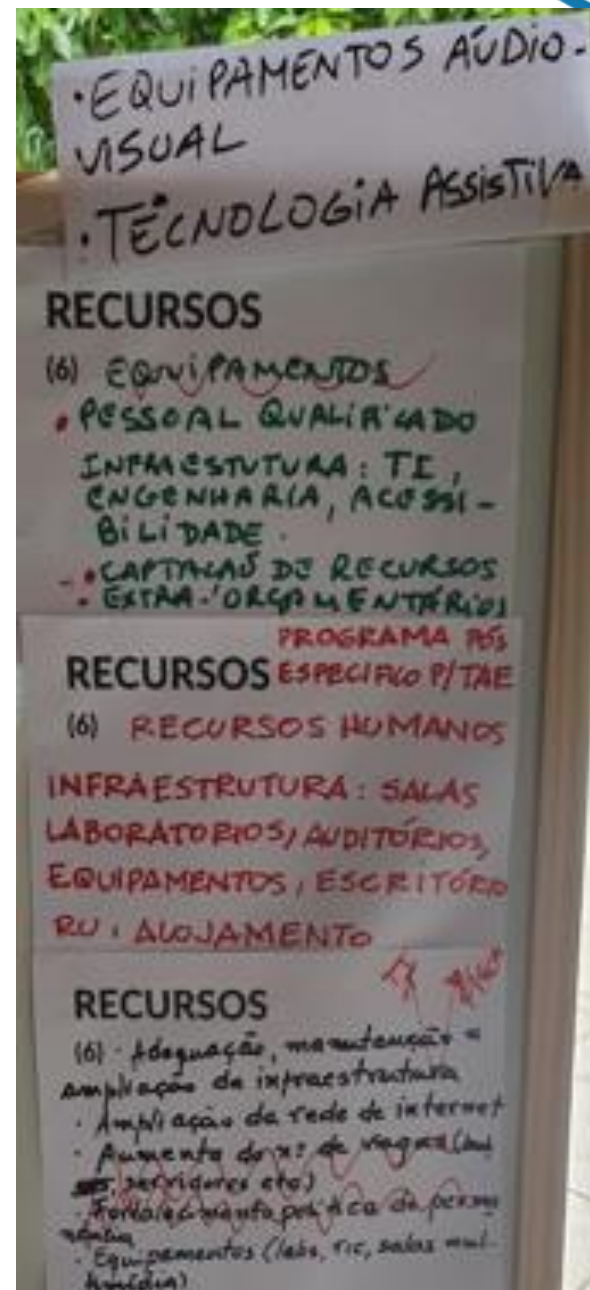 • EQUIPAMENTOS AÚDIO-
VISUAL
• TECNOLOGIA ASSISTIVA
RECURSOS
(6) EQUIPAMENTOS
• PESSOAL QUALIFICADO
INFRAESTUTURA: TI,
ENGENHARIA, ACESSI-
BILIDADE.
- • CAPTAÇAÕ DE RECURSOS
• EXTRA-ORÇAMENTÁRIOS
PROGRAMA PÓS
RECURSOS ESPECIFICO P/TAE
(6) RECURSOS HUMANOS
INFRAESTRUTURA: SALAS
LABORATORIOS, AUDITÓRIOS,
EQUIPAMENTOS, ESCRITÓRIO
RU, ALOJAMENTO
RECURSOS
(6) • Adequação, manutenção e
ampliação da infraestrutura
• Ampliação da rede de internet
• Aumento do nº de
servidores etc)
• Fortalecimento política de perma
nência
• Equipamentos (labs, TIC, salas mul-
timídia)